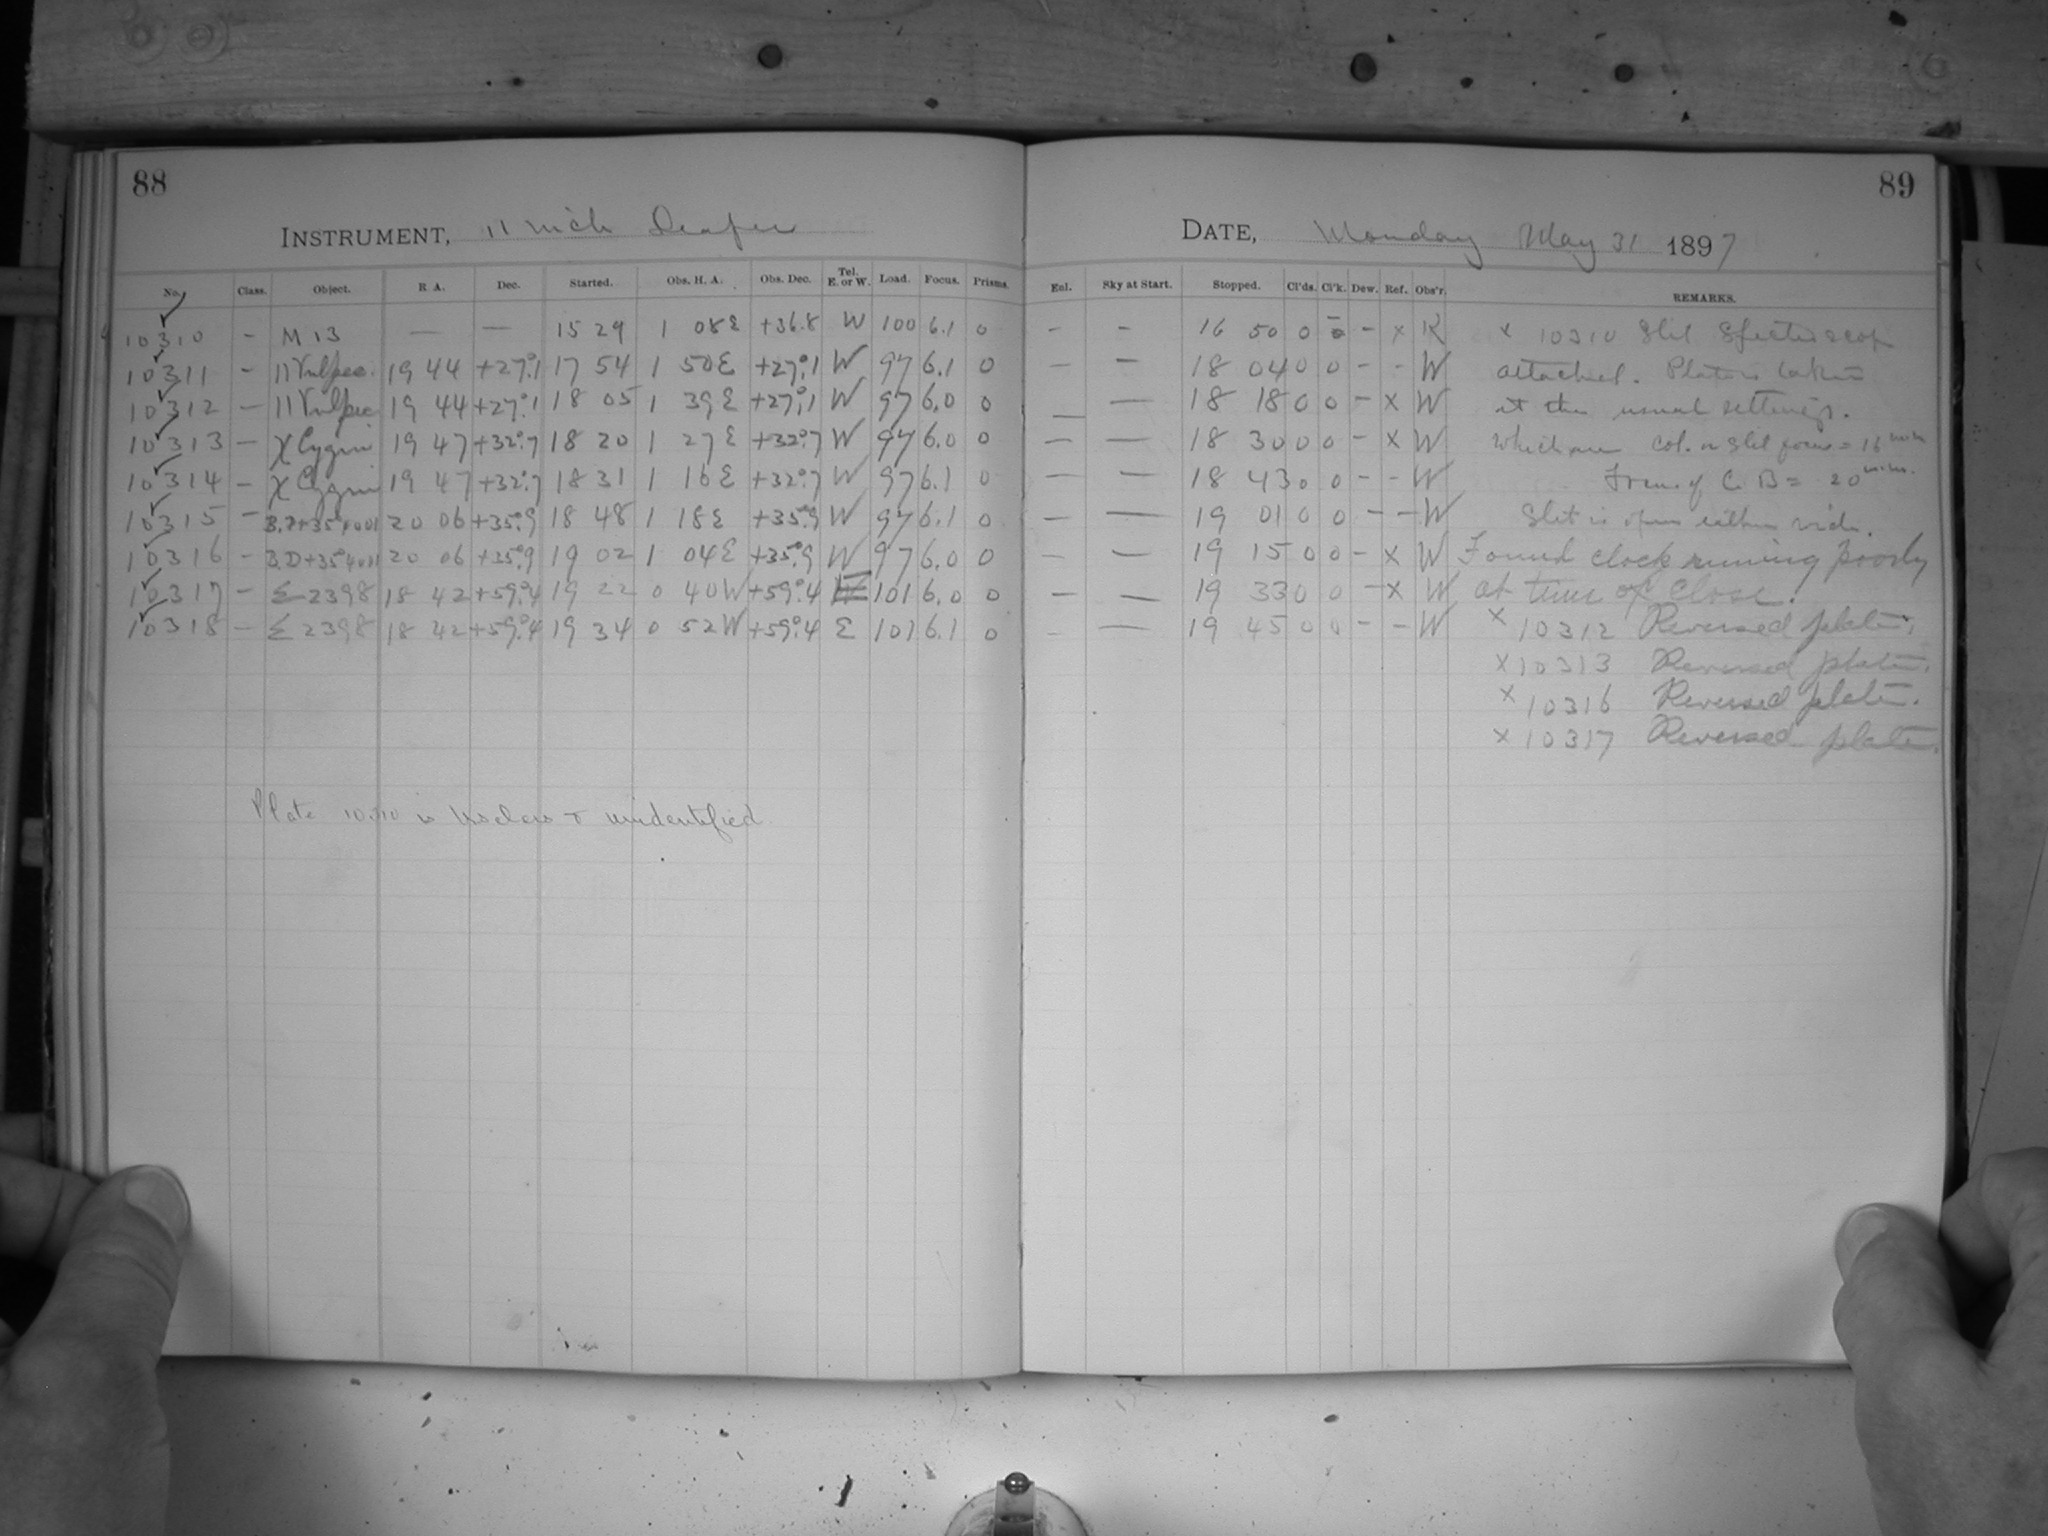 88
INSTRUMENT, 11 inch Draper
No. Class. Object. R A. Dec. Started. Obs. H. A. Obs. Dec. Tel. E. or W. Load. Focus. Prisms.
10310 - M 13 — — 15 29 1 08 E +36.8 W 100 6.1 0
10311 - 11 Vulpec. 19 44 +27°.1 17 54 1 50 E +27°.1 W 97 6.1 0
10312 - 11 Vulpec 19 44 +27°.1 18 05 1 39 E +27°.1 W 97 6.0 0
10313 - χ Cygni 19 47 +32°.7 18 20 1 27 E +32°.7 W 97 6.0 0
10314 - χ Cygni 19 47 +32°.7 18 31 1 16 E +32°.7 W 97 6.1 0
10315 - B.D+35°4001 20 06 +35°.9 18 48 1 18 E +35°.9 W 97 6.1 0
10316 - B.D+35°4001 20 06 +35°.9 19 02 1 04 E +35°.9 W 97 6.0 0
10317 - Σ 2398 18 42 +59°.4 19 22 0 40 W +59°.4 E 101 6.0 0
10318 - Σ 2398 18 42 +59°.4 19 34 0 52 W +59°.4 E 101 6.1 0
Plate 10310 is useless & unidentified
89
DATE, Monday May 31 1897
Enl. Sky at Start. Stopped. Cl'ds. Cl'k. Dew. Ref. Obs'r. REMARKS.
- - 16 50 0 0 - x K x 10310 Slit Spectroscope
— — 18 04 0 0 - - W attached. Plate is taken
— — 18 18 0 0 - x W at the usual settings.
— — 18 30 0 0 - x W which are Col. or Slit focus = 16 mm
— — 18 43 0 0 - - W Focus of C. B = 20 m.m.
— — 19 01 0 0 - - W Slit is open rather wide.
— — 19 15 0 0 - x W Found clock running poorly
— — 19 33 0 0 - x W at time of close.
- — 19 45 0 0 - - W x 10312 Reversed plate.
x 10313 Reversed plate.
x 10316 Reversed plate.
x 10317 Reversed plate.